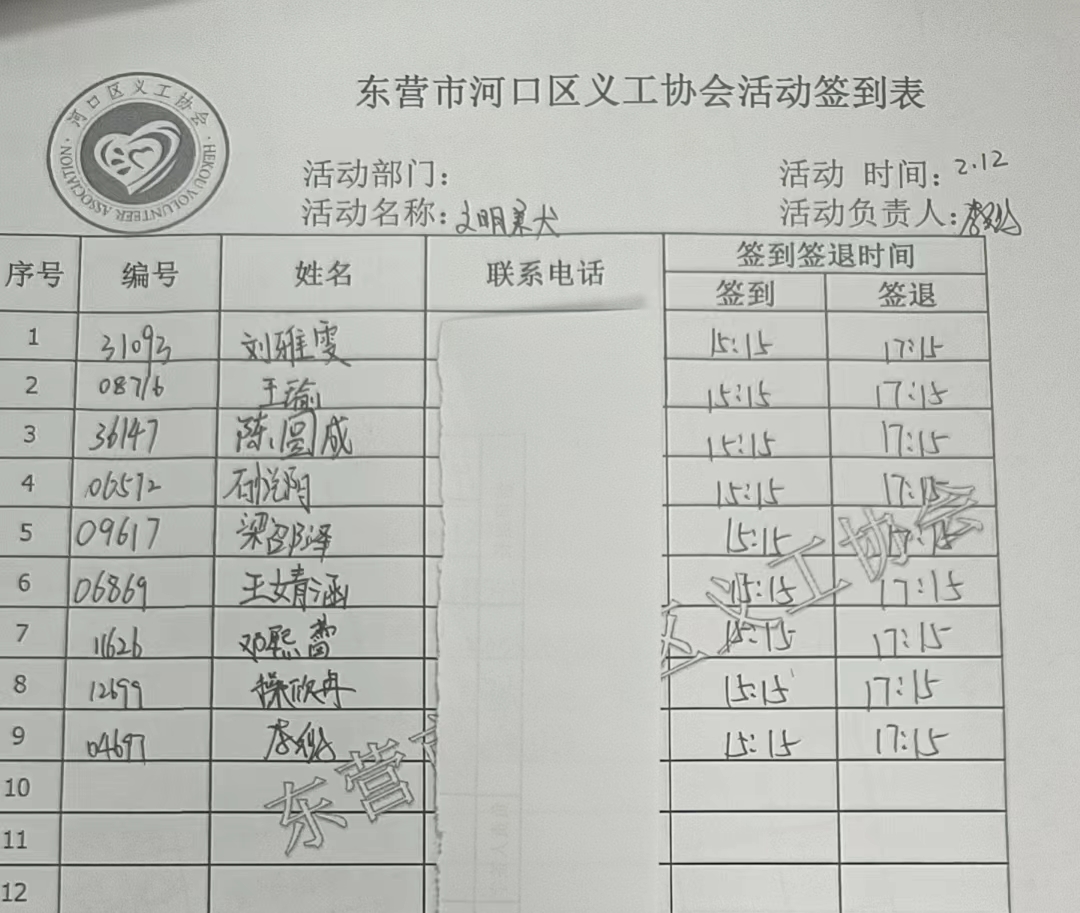 河口区义工协会
HEKOU VOLUNTEER ASSOCIATION
东营市河口区义工协会活动签到表
活动部门:
活动 时间: 2.12
活动名称: 文明养犬
活动负责人:
序号 编号 姓名 联系电话 签到签退时间
签到 签退
1 31093 刘雅雯 15:15 17:15
2 08716 王瑜 15:15 17:15
3 36147 陈圆成 15:15 17:15
4 06572 石悦阳 15:15 17:15
5 09617 梁邵泽 15:15 17:15
6 06869 王婧涵 15:15 17:15
7 11626 邓熙蕾 15:15 17:15
8 12699 操欣冉 15:15 17:15
9 04697 15:15 17:15
10
11
12
东营
区义工协会